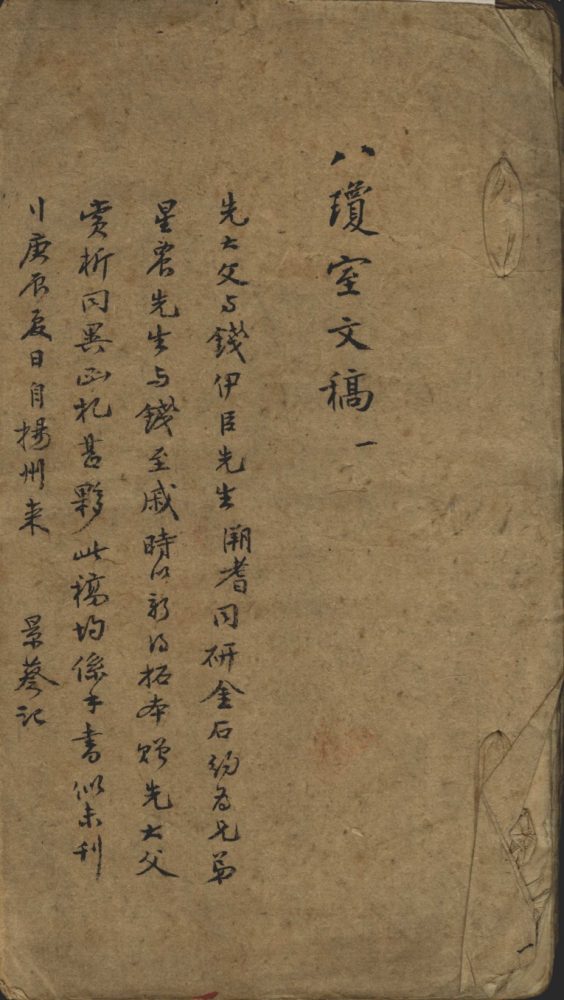 八瓊室文稿 一
先大父与錢伊臣先生溯耆同研金石約為兄弟
星農先生与錢至戚時以新得拓本贈先大父
賞析同異函札甚夥此稿均係手書似未刊
庚辰夏日自揚州来 景蔡記